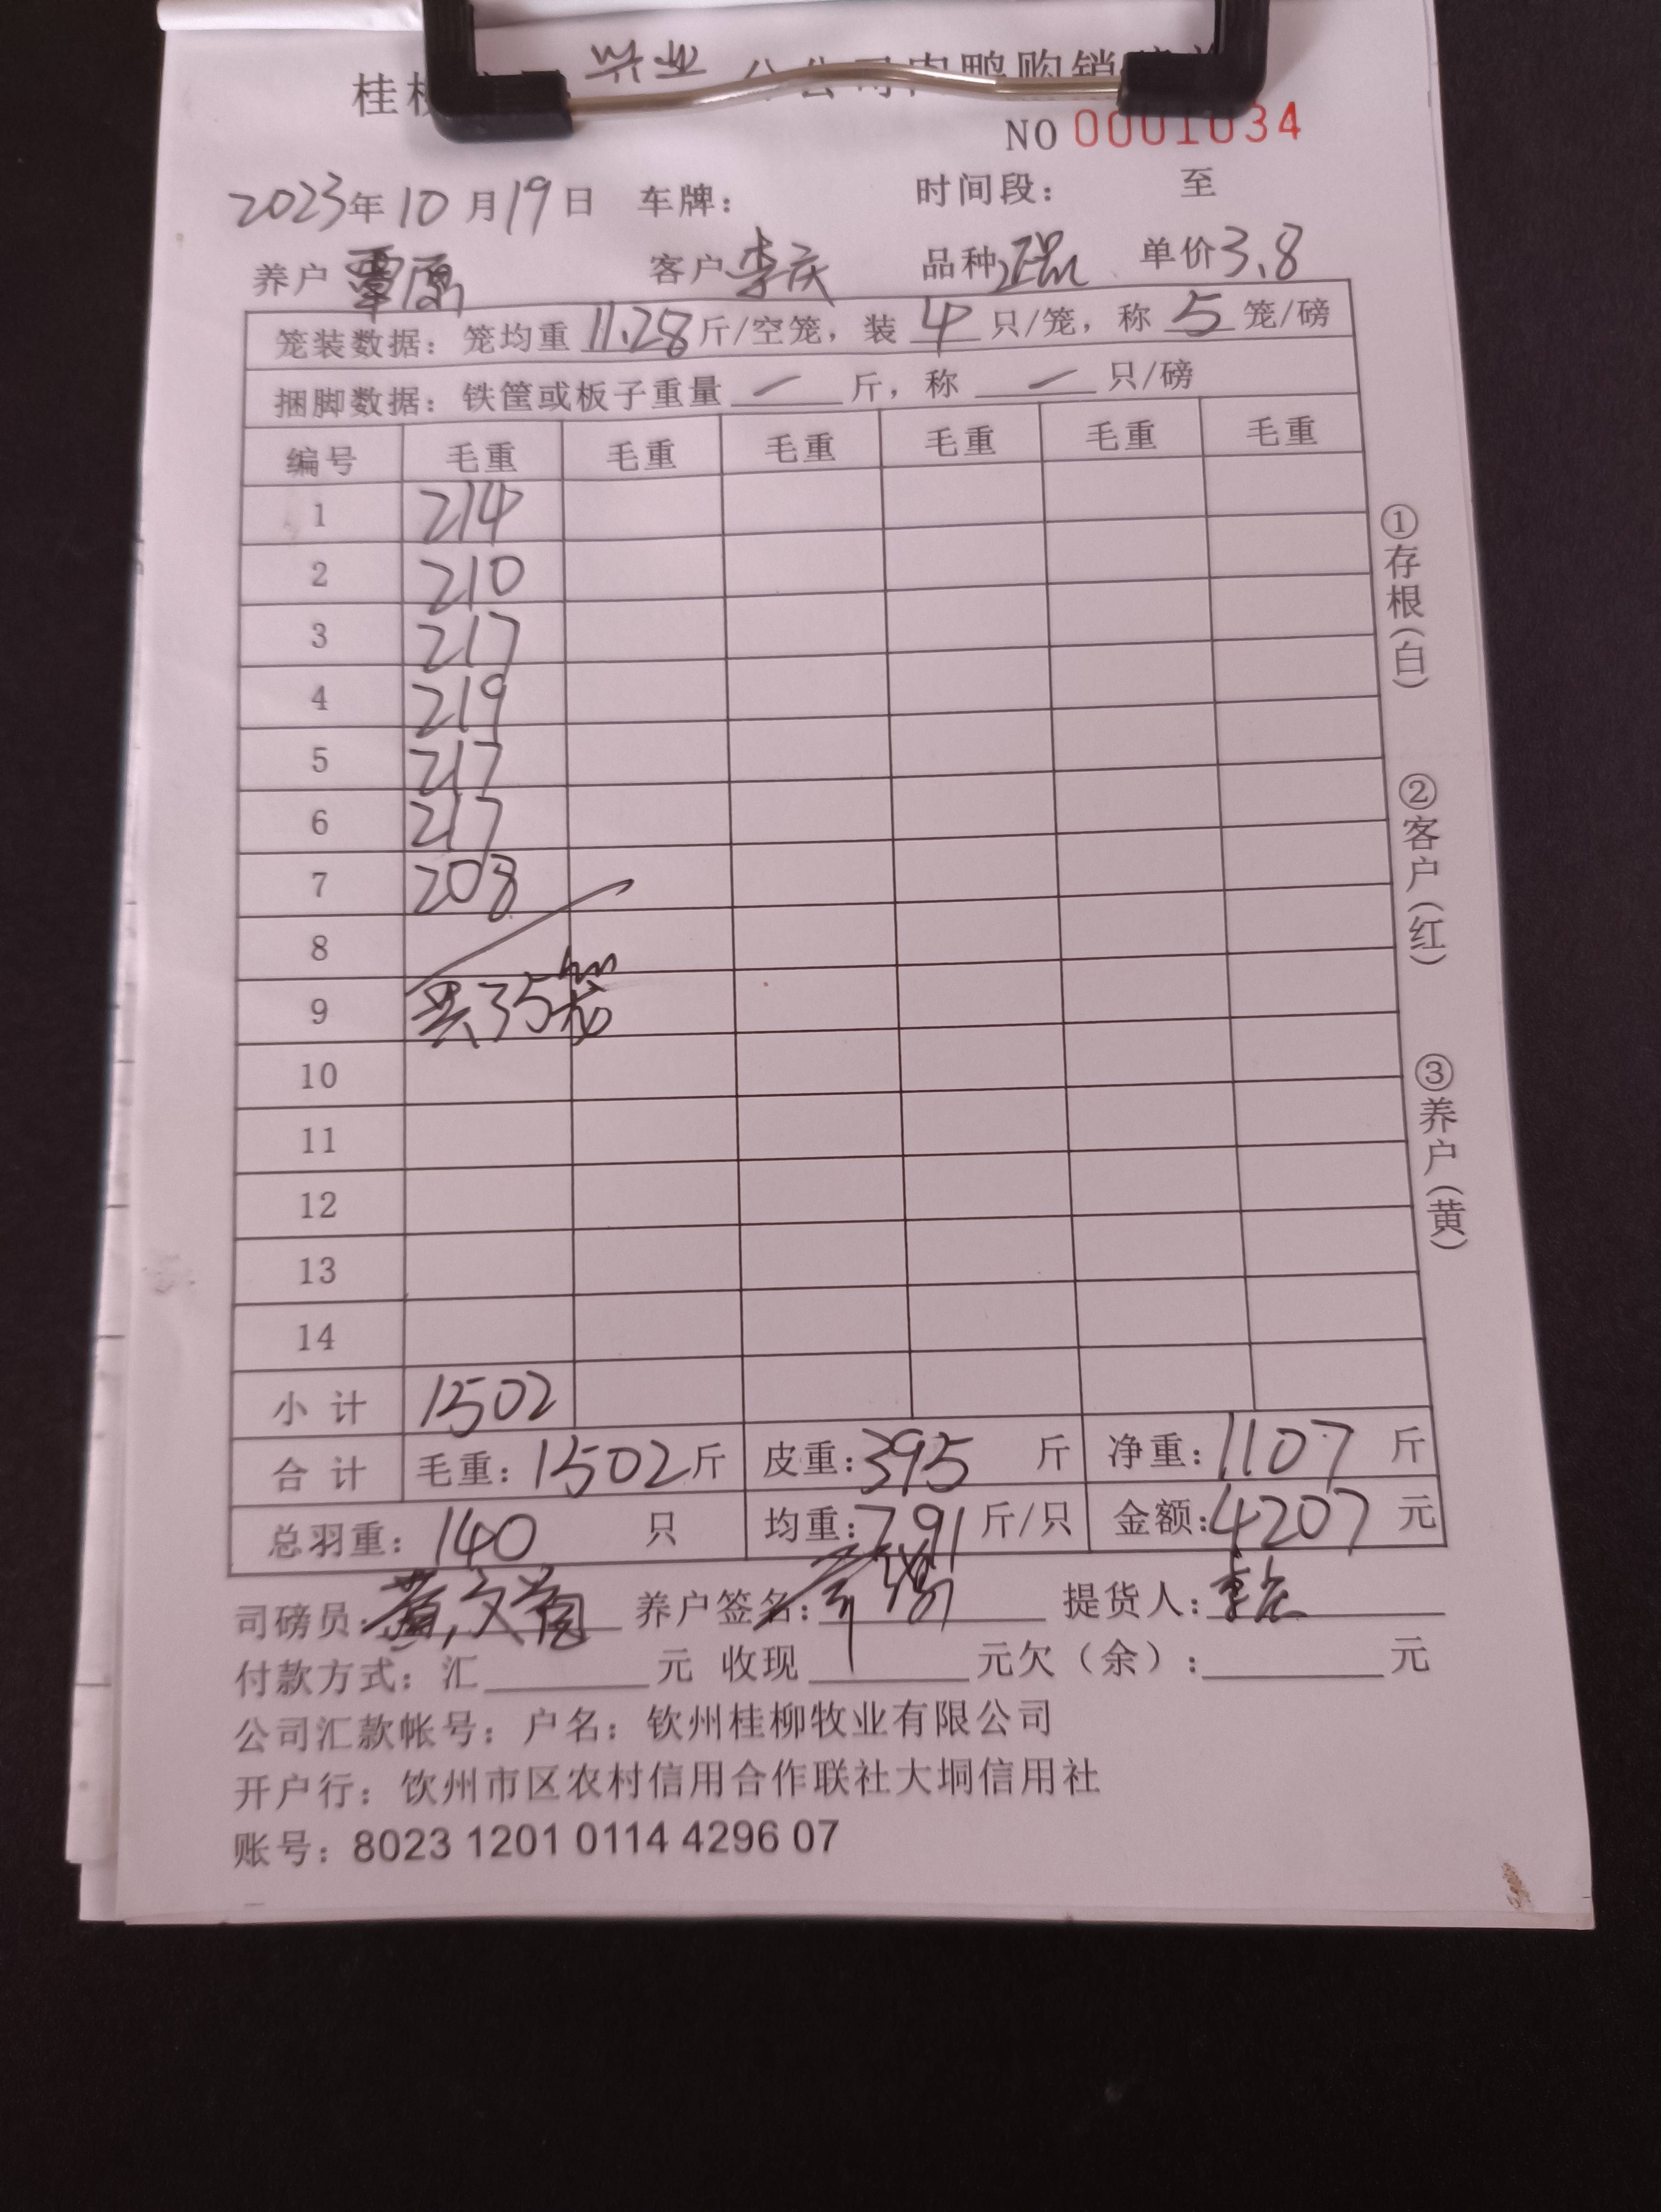 桂 兴业 分公司肉鸭购销
NO 0001034
2023年10月19日 车牌: 时间段: 至
养户 覃原 客户 李庆 品种 单价3.8
笼装数据: 笼均重 11.28 斤/空笼, 装 4 只/笼, 称 5 笼/磅
捆脚数据: 铁筐或板子重量 — 斤, 称 — 只/磅
编号 毛重 毛重 毛重 毛重 毛重 毛重
1 214
2 210
3 217
4 219
5 217
6 217
7 208
8
9 共35笼
10
11
12
13
14
小计 1502
合计 毛重: 1502斤 皮重: 395 斤 净重: 1107 斤
总羽重: 140 只 均重: 7.91 斤/只 金额: 4207 元
司磅员: 养户签名: 提货人: 李庆
付款方式: 汇 元 收现 元欠(余): 元
公司汇款帐号: 户名: 钦州桂柳牧业有限公司
开户行: 饮州市区农村信用合作联社大垌信用社
账号: 8023 1201 0114 4296 07
①存根(白)
②客户(红)
③养户(黄)